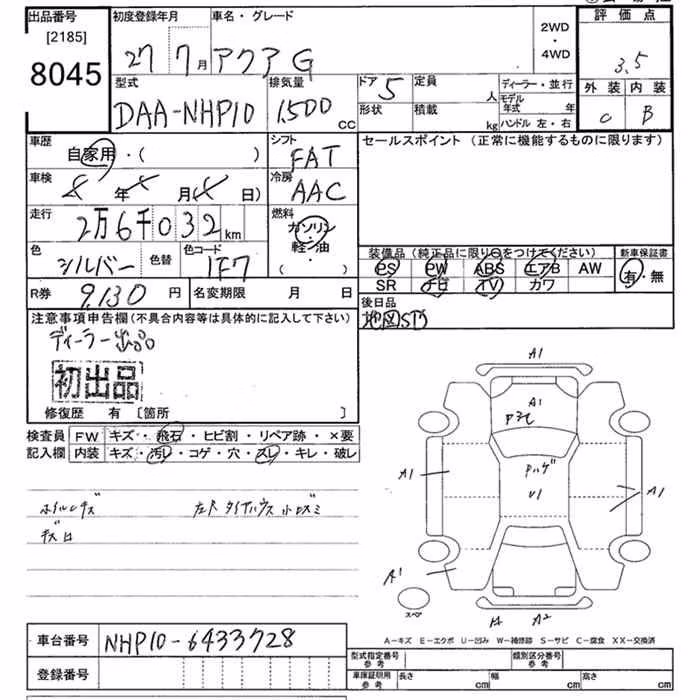 出品番号
[2185]
8045
初度登録年月
27 7月
車名・グレード
アクア G
2WD
・
4WD
評価点
3.5
外装 内装
C B
型式
DAA-NHP10
排気量
1500 cc
ドア 5
形状
定員 人
積載 kg
ディーラー・並行
モデル年式 年
ハンドル 左・右
車歴
自家用・( )
シフト
FAT
セールスポイント(正常に機能するものに限ります)
車検
年 月( 日)
冷房
AAC
走行
2万6千032km
燃料
ガソリン
軽油
・( )
色
シルバー
色替
色コード
1F7
装備品(純正品に限り○をつけてください)
PS PW ABS エアB AW
SR ナビ TV カワ
新車保証書
有・無
R券 9,130 円
名変期限 月 日
後日品
地図SD
注意事項申告欄(不具合内容等は具体的に記入して下さい)
ディーラー出品
初出品
修復歴 有 [箇所 ]
検査員
記入欄
FW キズ・飛石・ヒビ割・リペア跡・×要
内装 キズ・汚レ・コゲ・穴・スレ・キレ・破レ
キズ
A1
A1
A1
U1
A1
A1
A2
スペア
A-キズ E-エクボ U-凹み W-補修跡 S-サビ C-腐食 XX-交換済
車台番号
NHP10-6433728
登録番号
型式指定番号
参考
類別区分番号
参考
車庫証明用
参考
長さ cm
幅 cm
高さ cm